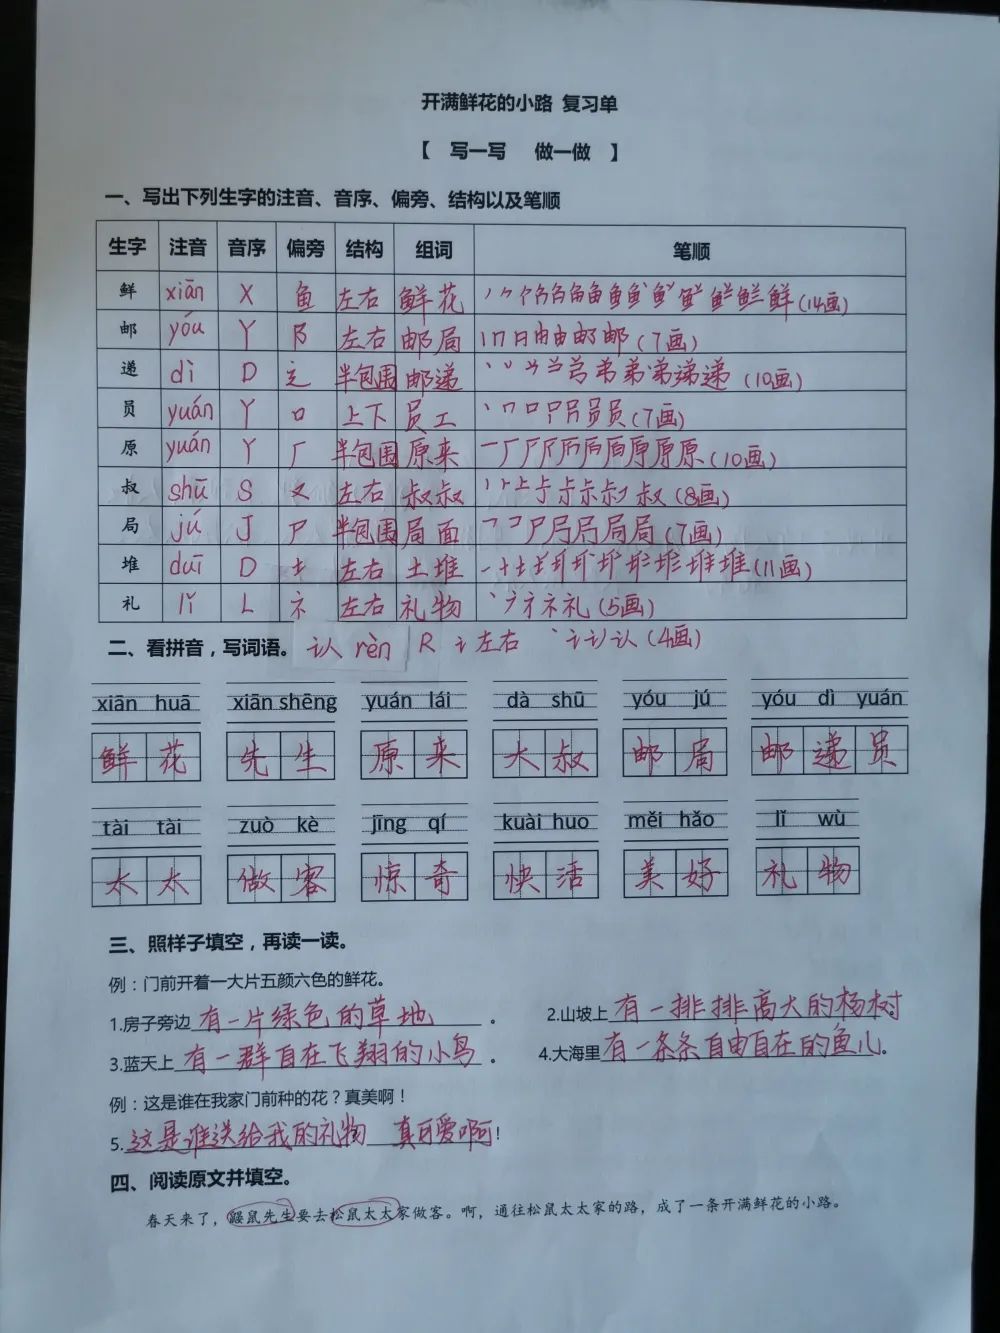 开满鲜花的小路 复习单
【 写一写 做一做 】
一、写出下列生字的注音、音序、偏旁、结构以及笔顺
生字 注音 音序 偏旁 结构 组词 笔顺
鲜 xiān X 鱼 左右 鲜花 (14画)
邮 yóu Y 阝 左右 邮局 (7画)
递 dì D 辶 半包围 邮递 (10画)
员 yuán Y 口 上下 员工 (7画)
原 yuán Y 厂 半包围 原来 (10画)
叔 shū S 又 左右 叔叔 (8画)
局 jú J 尸 半包围 局面 (7画)
堆 duī D 土 左右 土堆 (11画)
礼 lǐ L 礻 左右 礼物 (5画)
二、看拼音，写词语。 认 rèn R 讠 左右 (4画)
xiān huā xiān shēng yuán lái dà shū yóu jú yóu dì yuán
鲜花 先生 原来 大叔 邮局 邮递员
tài tài zuò kè jīng qí kuài huo měi hǎo lǐ wù
太太 做客 惊奇 快活 美好 礼物
三、照样子填空，再读一读。
例：门前开着一大片五颜六色的鲜花。
1.房子旁边有一片绿色的草地。 2.山坡上有一排排高大的杨树。
3.蓝天上有一群自在飞翔的小鸟。 4.大海里有一条条自由自在的鱼儿。
例：这是谁在我家门前种的花？真美啊！
5.这是谁送给我的礼物 真可爱啊！
四、阅读原文并填空。
春天来了，鼹鼠先生要去松鼠太太家做客。啊，通往松鼠太太家的路，成了一条开满鲜花的小路。